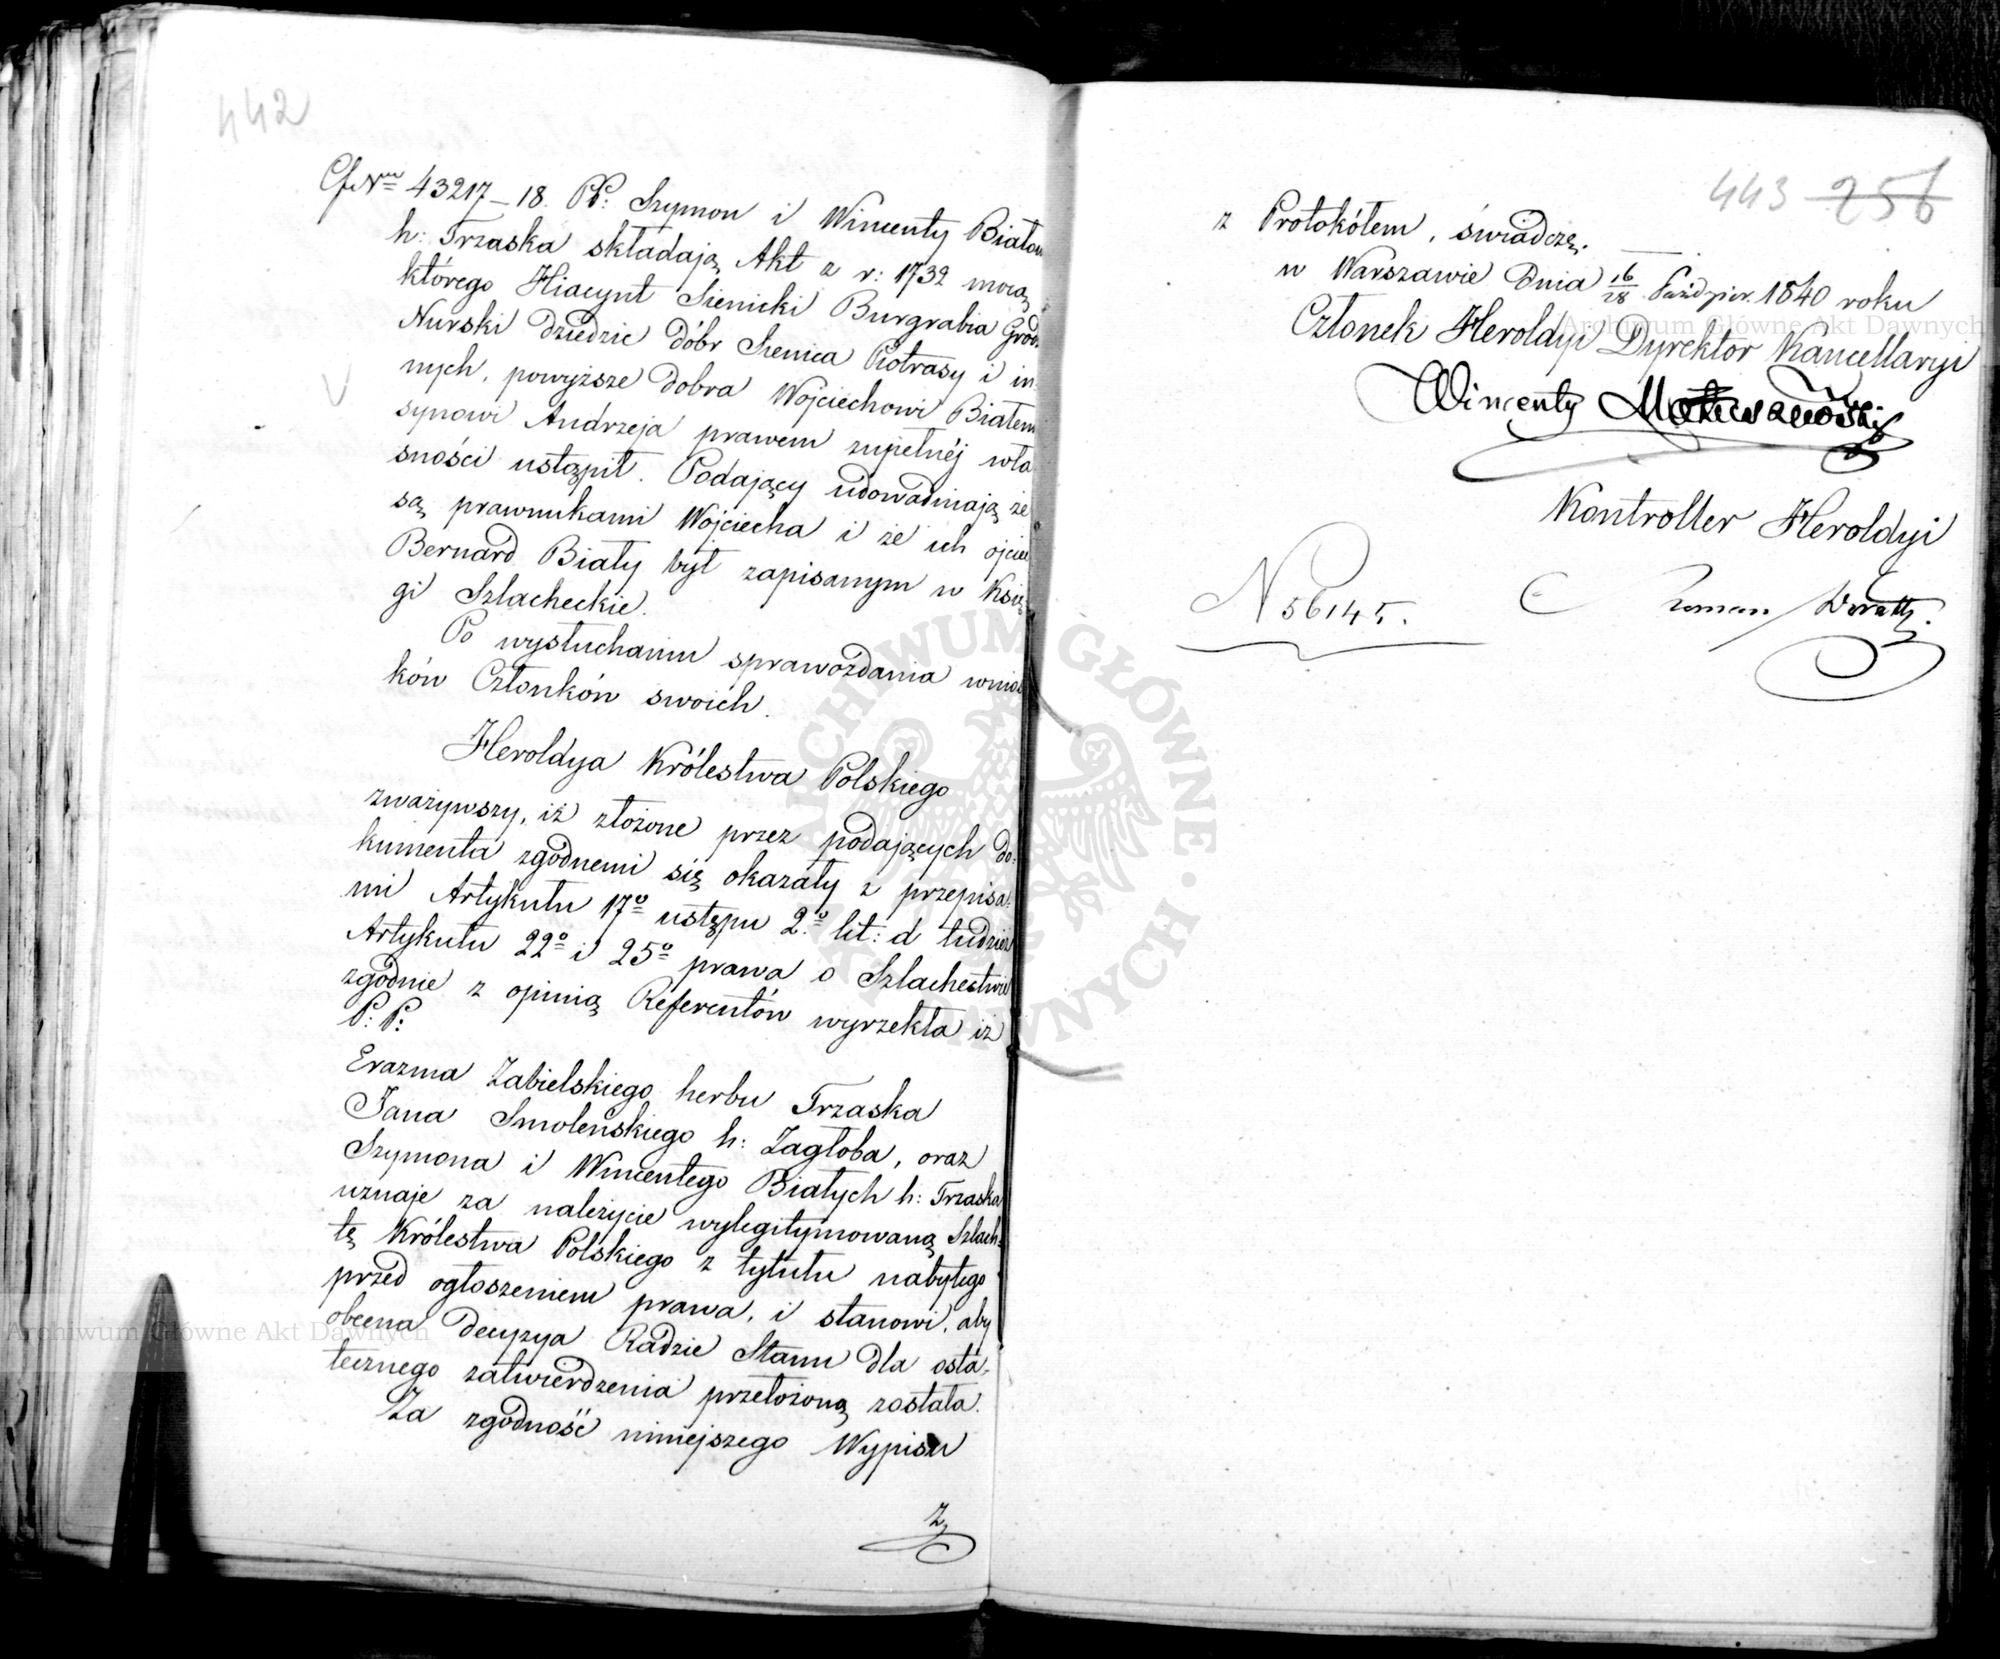 442
Nru 43217–18. PP: Szymon i Wincenty Biało
h: Trzaska składają Akt z r: 1732 mocą
którego Hiacynt Sienicki Burgrabia Grodz
Nurski dziedzic dóbr Sienica Pietrasy i in-
nych, powyższe dobra Wojciechowi Białem
synowi Andrzeja prawem zupełnéj wła
sności ustąpił. Podający udowadniają że
są prawnukami Wojciecha i że ich ojciec
Bernard Biały był zapisanym w Ksią
gi Szlacheckie.
Po wysłuchaniu sprawozdania wnios
ków Członków swoich.
Heroldya Królestwa Polskiego
zważywszy, iż złożone przez podających do-
kumenta zgodnemi się okazały z przepisa-
mi Artykułu 17º ustępu 2.º lit: d tudzież
Artykułu 22º i 25º prawa o Szlachectwie
zgodnie z opinią Referentów wyrzekła iż
P: P:
Erazma Zabielskiego herbu Trzaska
Jana Smoleńskiego h: Zagłoba, oraz
Szymona i Wincentego Białych h: Trzaska
uznaje za należycie wylegitymowaną Szlach-
tę Królestwa Polskiego z tytułu nabytego
przed ogłoszeniem prawa, i stanowi, aby
obecna decyzya Radzie Stanu dla osta-
tecznego zatwierdzenia przełożoną została.
Za zgodność niniejszego Wypisu
z
443 256
z Protokółem, świadczę.
w Warszawie Dnia 16/28 Paździer. 1840 roku
Członek Heroldyi Dyrektor Kancellaryi
Wincenty
Kontroller Heroldyi
N 56145.
Roman
Archiwum Główne Akt Dawnych
Archiwum Główne Akt Dawnych
ARCHIWUM GŁÓWNE · AKT DAWNYCH ·